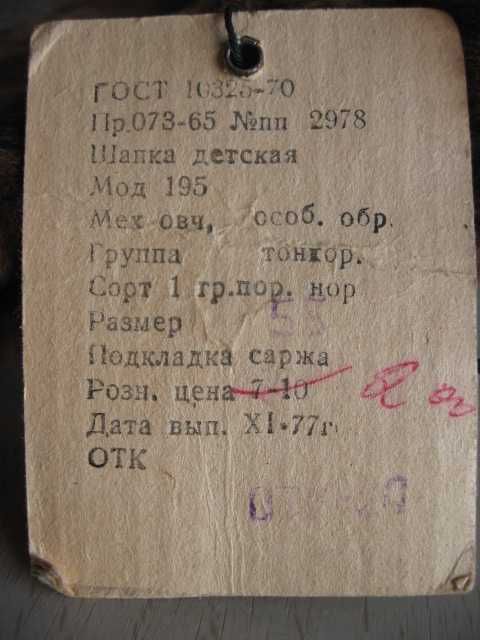 ГОСТ 10325-70
Пр.073-65 №пп 2978
Шапка детская
Мод 195
Мех овч, особ. обр.
Группа тонкор.
Сорт 1 гр.пор. нор
Размер 53
Подкладка саржа
Розн. цена 7-10
Дата вып. XI-77г
ОТК